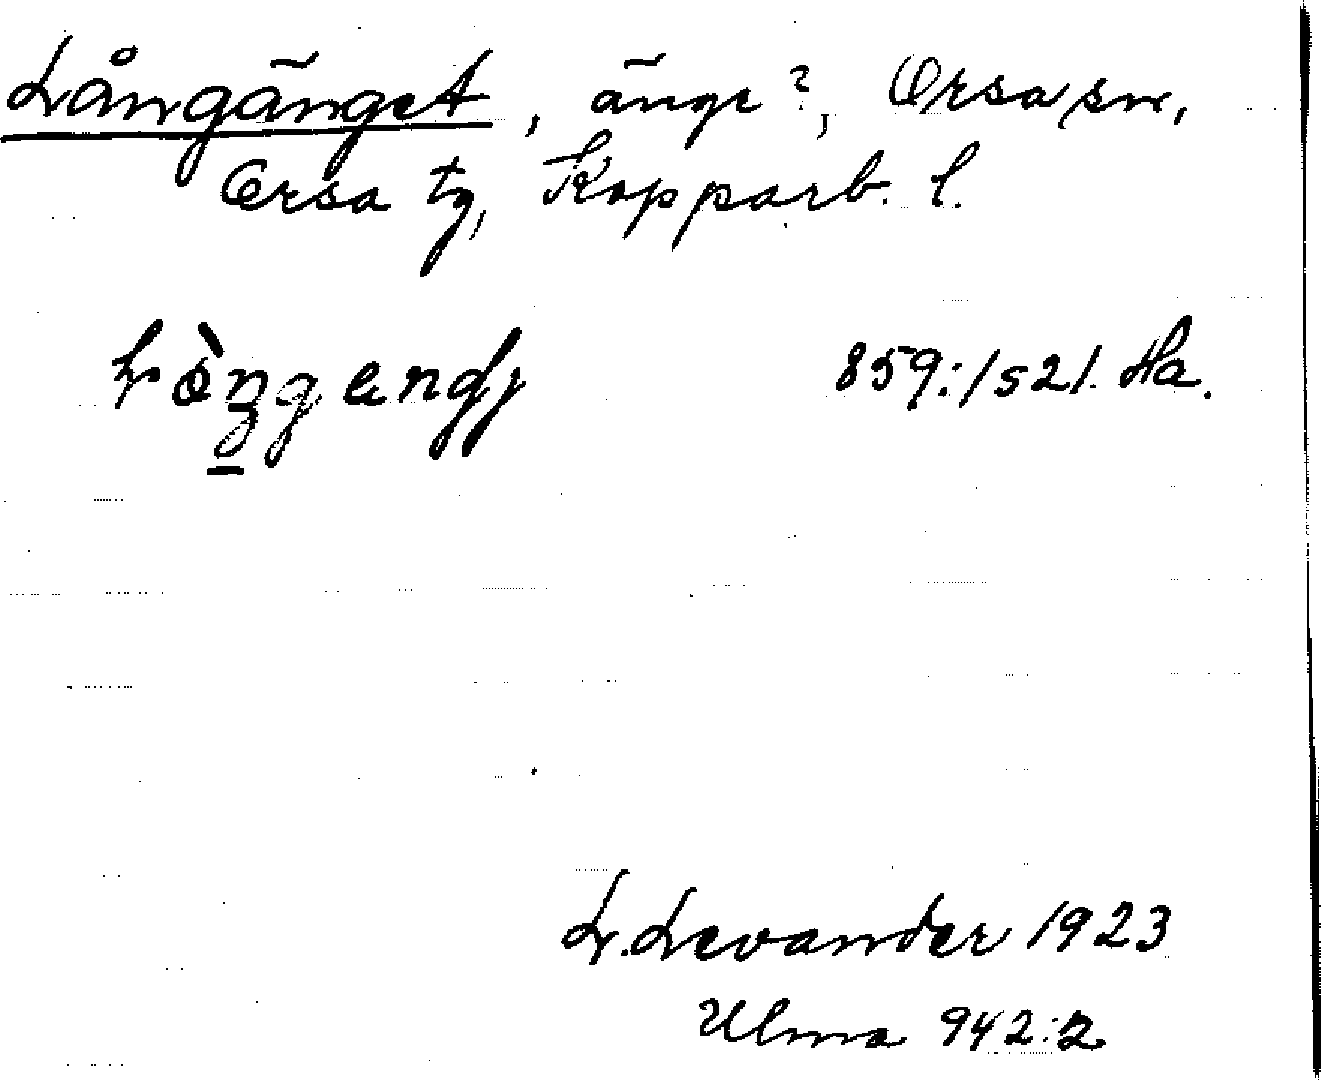 Långänget, änge?, Orsa sn,
Orsa tg, Kopparb. l.
859:1521. Ha.
L. Levander 1923
Ulma 942:2